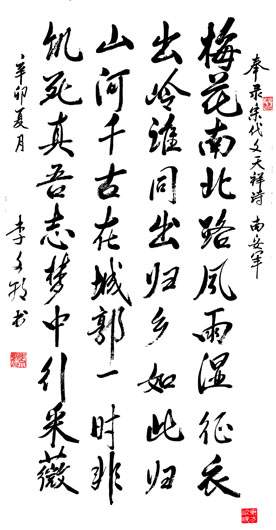 奉录宋代文天祥诗 南安军
梅花南北路风雨湿征衣
出岭谁同出归乡如此归
山河千古在城郭一时非
饥死真吾志梦中行采薇
辛卯夏月 李文书